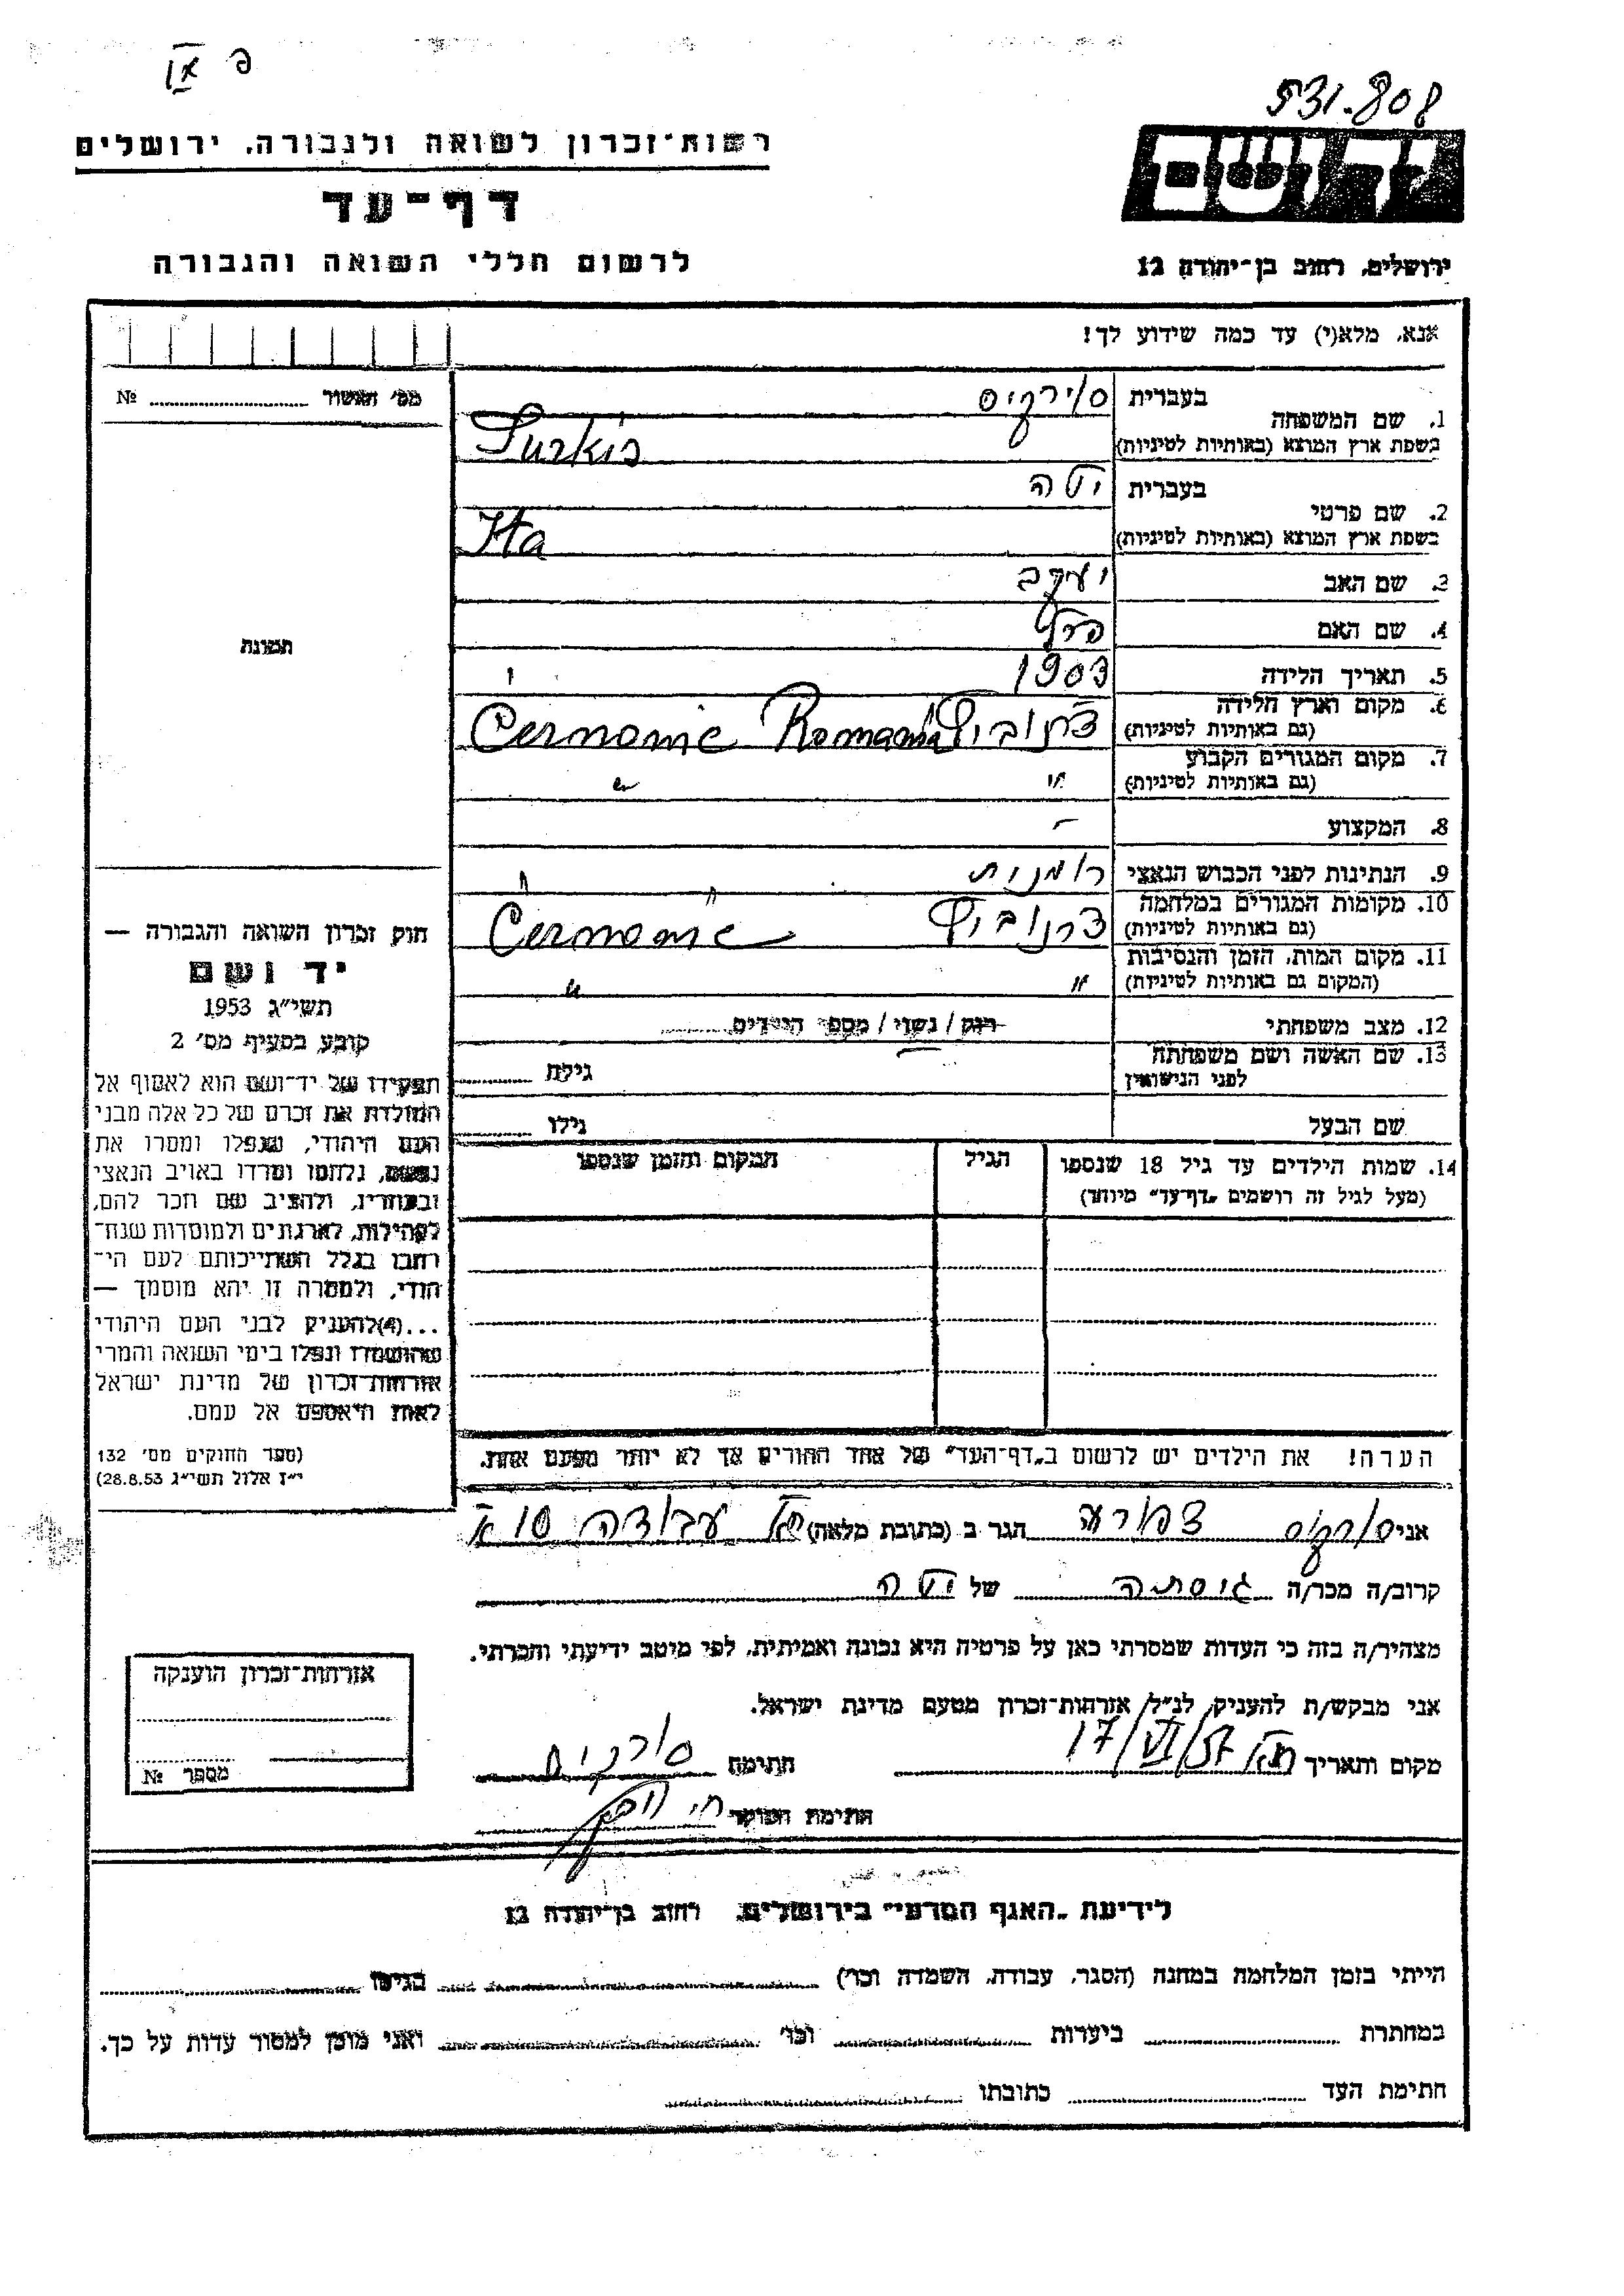 פ
531.808
רשות־זכרון לשואה ולגבורה, ירושלים
דף־עד
לרשום חללי השואה והגבורה
ירושלים, רחוב בן־יהודה 12
אנא, מלא(י) עד כמה שידוע לך!
מס׳ האשור № 
1. שם המשפחה
בעברית סירקיס
בשפת ארץ המוצא (באותיות לטיניות) Surkis
2. שם פרטי
בעברית יטה
בשפת ארץ המוצא (באותיות לטיניות) Ita
3. שם האב יעקב
4. שם האם פרל
5. תאריך הלידה 1903
6. מקום וארץ הלידה
(גם באותיות לטיניות) צרנוביץ Romania Cernovic
7. מקום המגורים הקבוע
(גם באותיות לטיניות) " "
8. המקצוע -
9. הנתינות לפני הכבוש הנאצי רומנית
10. מקומות המגורים במלחמה
(גם באותיות לטיניות) צרנוביץ Cernovic
11. מקום המות, הזמן והנסיבות
(המקום גם באותיות לטיניות) " "
12. מצב משפחתי רווק / נשוי / מספר הילדים
13. שם האשה ושם משפחתה
לפני הנישואין גילה
שם הבעל גילו
14. שמות הילדים עד גיל 18 שנספו הגיל המקום והזמן שנספו
(מעל לגיל זה רושמים „דף־עד״ מיוחד)
הערה! את הילדים יש לרשום ב„דף־העד״ של אחד ההורים אך לא יותר מפעם אחת.
תמונה
חוק זכרון השואה והגבורה —
יד ושם
תשי״ג 1953
קובע בסעיף מס׳ 2
תפקידו של יד־ושם הוא לאסוף אל
המולדת את זכרם של כל אלה מבני
העם היהודי, שנפלו ומסרו את
נפשם, נלחמו ומרדו באויב הנאצי
ובעוזריו, ולהציב שם וזכר להם,
לקהילות, לארגונים ולמוסדות שנח־
רבו בגלל השתייכותם לעם הי־
הודי, ולמטרה זו יהא מוסמך —
...(4)להעניק לבני העם היהודי
שהושמדו ונפלו בימי השואה והמרי
אזרחות־זכרון של מדינת ישראל
לאות היאספם אל עמם.
(ספר החוקים מס׳ 132
י״ז אלול תשי״ג 28.8.53)
אני סורקיס צפורה הגר ב (כתובת מלאה) ת״א עבודה 10 א
קרוב/ה מכר/ה גיסתה של יטה
מצהיר/ה בזה כי העדות שמסרתי כאן על פרטיה היא נכונה ואמיתית, לפי מיטב ידיעתי והכרתי.
אני מבקש/ת להעניק לנ״ל אזרחות־זכרון מטעם מדינת ישראל.
מקום ותאריך ת״א 17/VI/57 חתימה סורקיס
חתימת הפוקד
אזרחות־זכרון הוענקה
מספר №
לידיעת „האגף המדעי״ בירושלים, רחוב בן־יהודה 12
הייתי בזמן המלחמה במחנה (הסגר, עבודה, השמדה וכו׳) בגיטו
במחתרת ביערות וכו׳ ואני מוכן למסור עדות על כך.
חתימת העד כתובתו